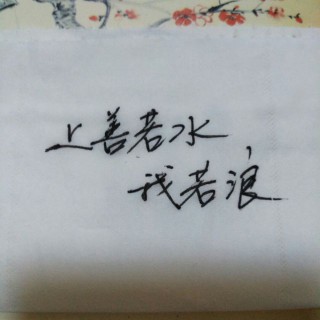 上善若水
我若浪